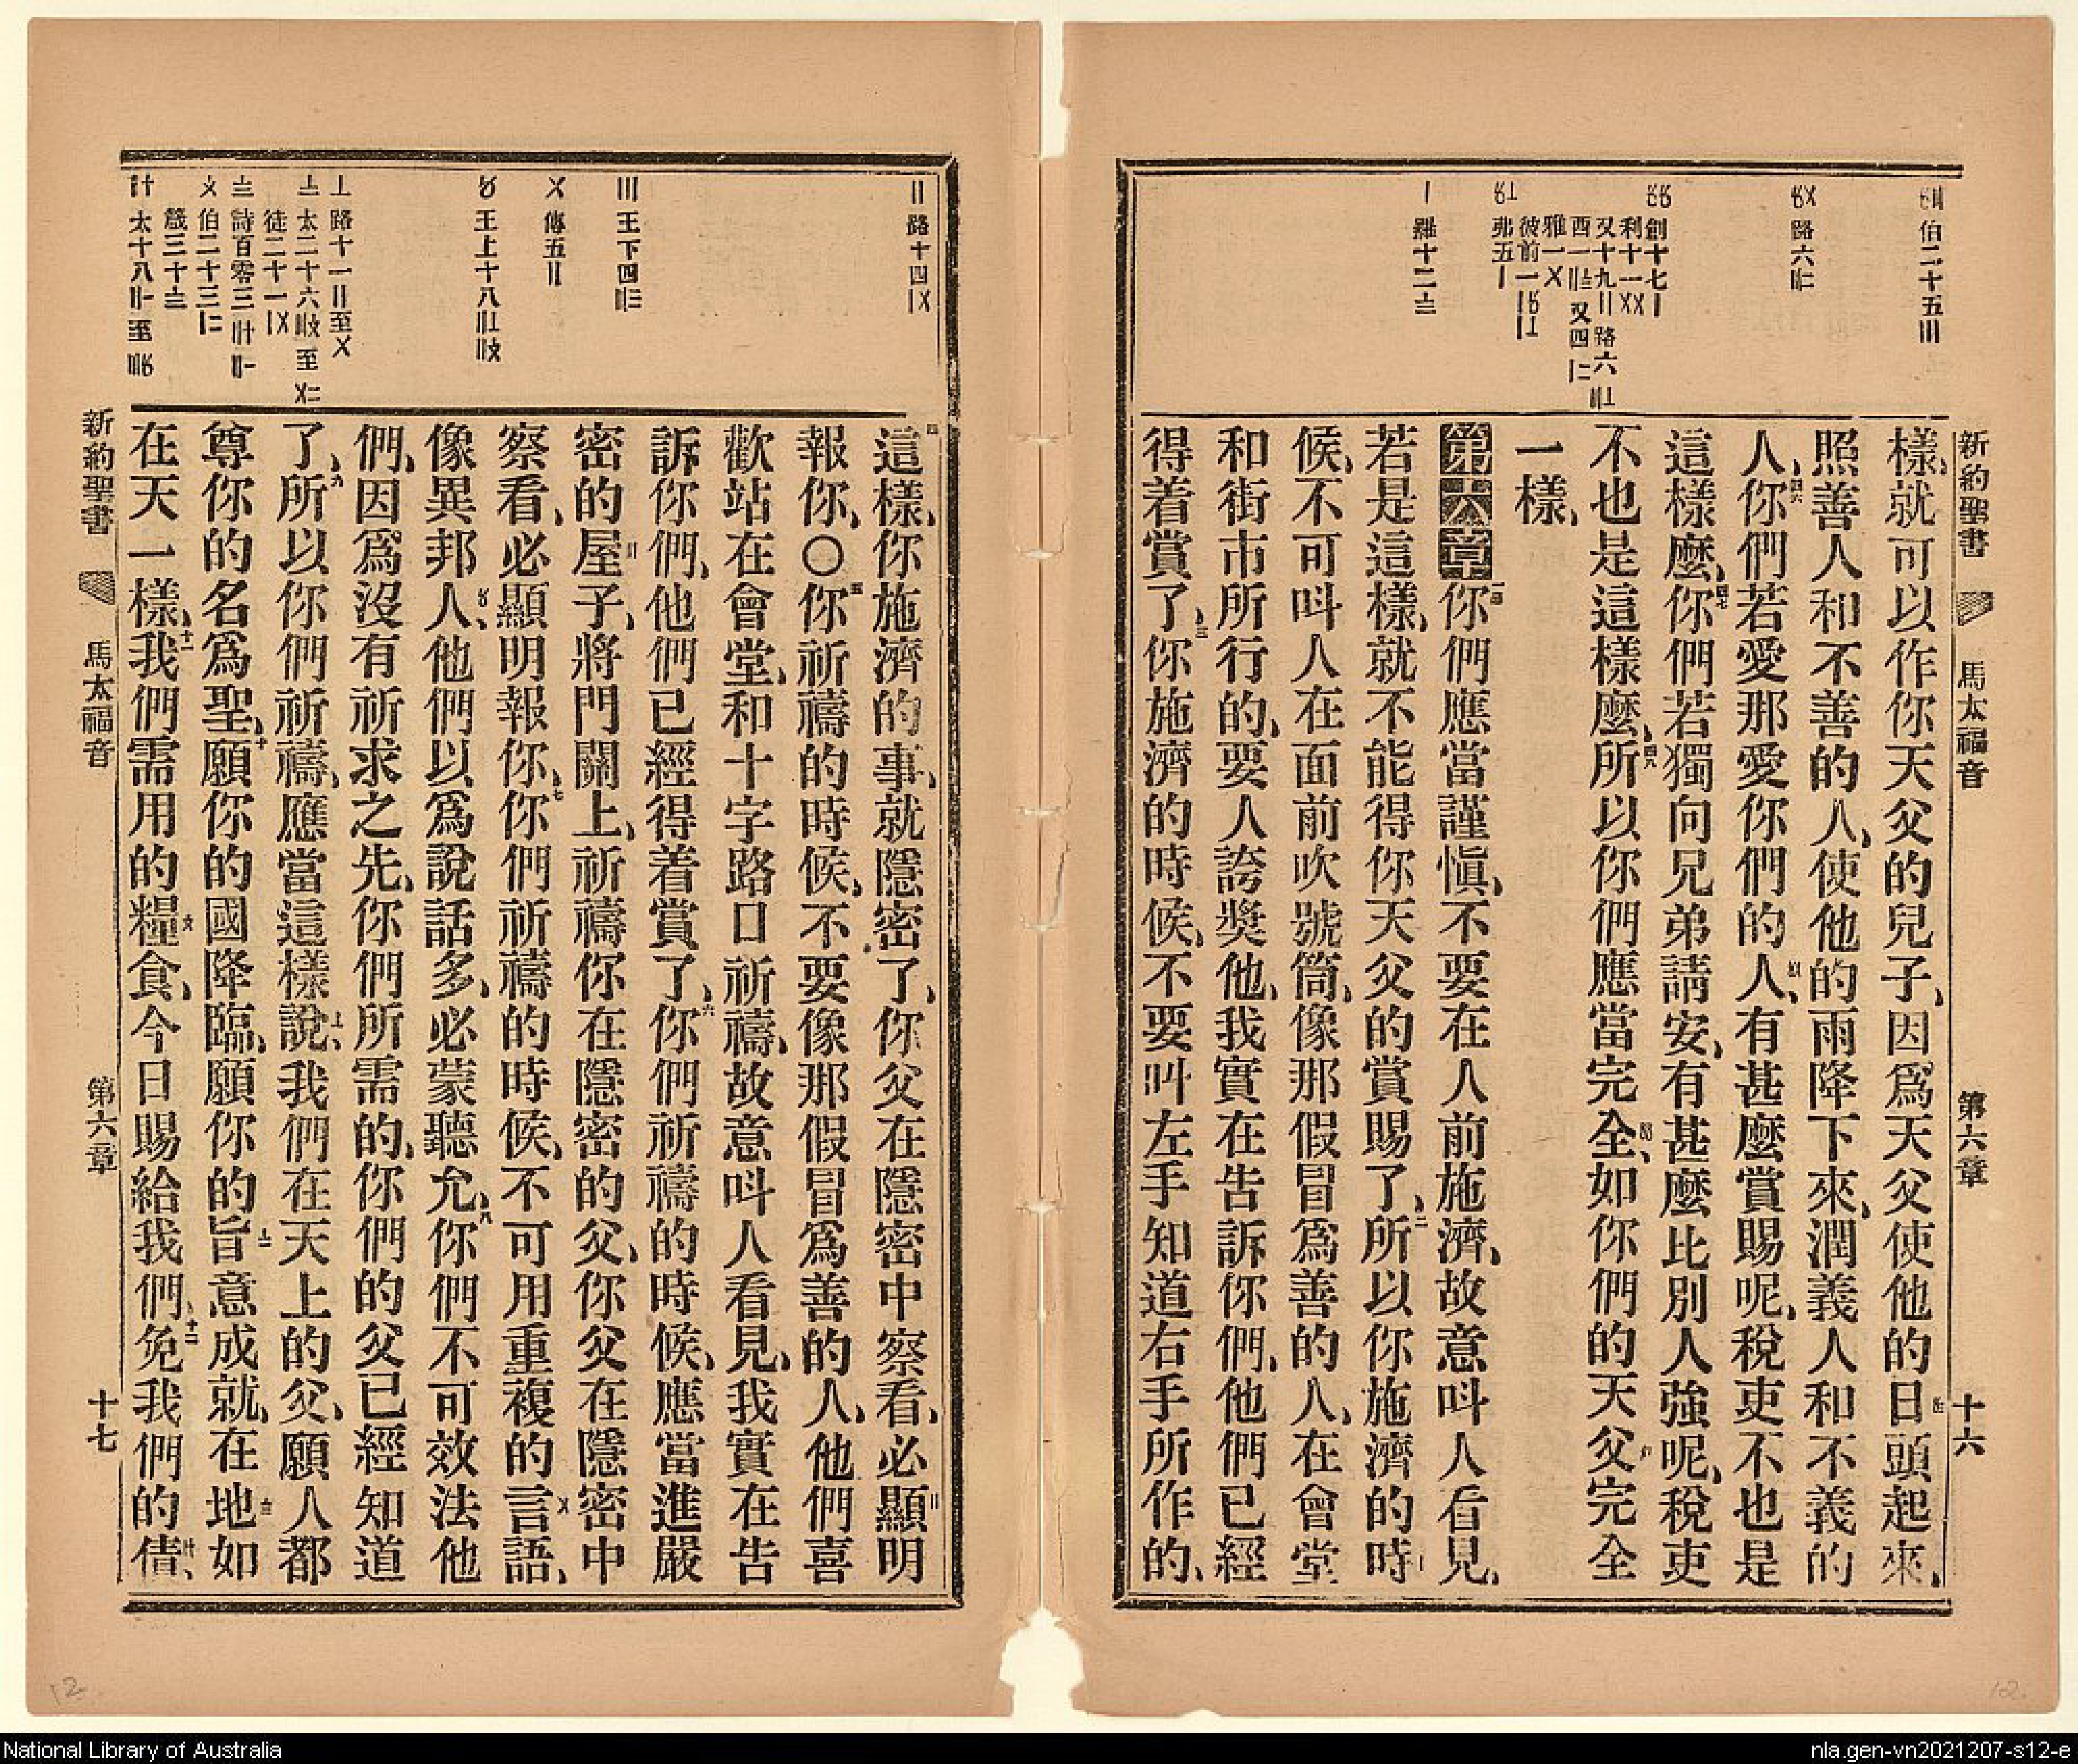 新約聖書 馬太福音 第六章 十六
伯二十五〣
路六
創十七〡
利十一〤〤
又十九〢路六
西一 又四
雅一〤
彼前一
弗五〡
〡 羅十二〨
樣、就可以作你天父的兒子、因爲天父使他的日頭起來、
照善人和不善的人、使他的雨降下來、潤義人和不義的
人、四六你們若愛那愛你們的人、有甚麼賞賜呢、稅吏不也是
這樣麼、四七你們若獨向兄弟請安、有甚麼比別人強呢、稅吏
不也是這樣麼、四八所以你們應當完全、如你們的天父完全
一樣、
第六章一你們應當謹愼、不要在人前施濟、故意呌人看見、
若是這樣、就不能得你天父的賞賜了、二所以你施濟的時
候、不可呌人在面前吹號筒、像那假冒爲善的人、在會堂
和街市所行的、要人誇奬他、我實在告訴你們、他們已經
得着賞了、三你施濟的時候、不要叫左手知道右手所作的、
〢 路十四〡〤
〣 王下四
〤 傳五〢
〥 王上十八
〦 路十一〢至〤
〧 太二十六 至
徒二十一〡〤
〨 詩百零三
〩 伯二十三
箴三十〨
太十八 至
四這樣、你施濟的事、就隱密了、你父在隱密中察看、必顯明
報你、○五你祈禱的時候、不要像那假冒爲善的人、他們喜
歡站在會堂、和十字路口祈禱、故意呌人看見、我實在告
訴你們、他們已經得着賞了、六你們祈禱的時候、應當進嚴
密的屋子、將門關上、祈禱你在隱密的父、你父在隱密中
察看、必顯明報你、七你們祈禱的時候、不可用重複的言語、
像異邦人、他們以爲說話多、必蒙聽允、八你們不可效法他
們、因爲沒有祈求之先、你們所需的、你們的父已經知道
了、九所以你們祈禱、應當這樣說、我們在天上的父、願人都
尊你的名爲聖、十願你的國降臨、願你的旨意成就、在地如
在天一樣、十一我們需用的糧食、今日賜給我們、十二免我們的債、
新約聖書 馬太福音 第六章 十七
12
12
National Library of Australia
nla.gen-vn2021207-s12-e